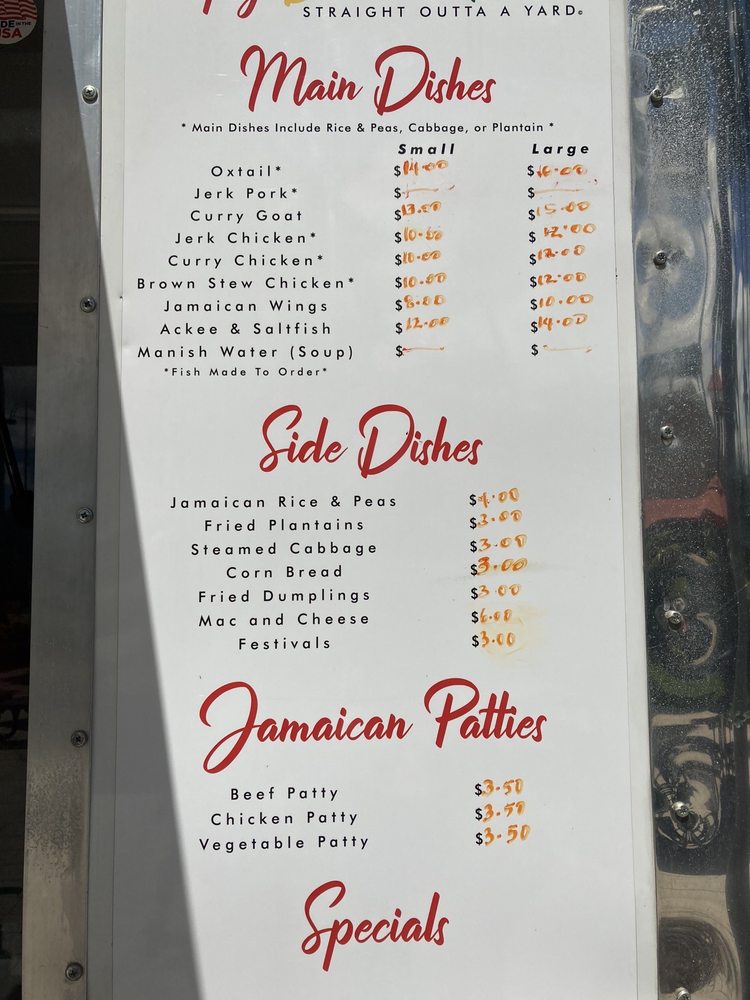 USA
STRAIGHT OUTTA A YARD
Main Dishes
* Main Dishes Include Rice & Peas, Cabbage, or Plantain *
Small Large
Oxtail* $14.00 $16.00
Jerk Pork* $— $—
Curry Goat $13.00 $15.00
Jerk Chicken* $10.00 $12.00
Curry Chicken* $10.00 $12.00
Brown Stew Chicken* $10.00 $12.00
Jamaican Wings $8.00 $10.00
Ackee & Saltfish $12.00 $14.00
Manish Water (Soup) $— $—
*Fish Made To Order*
Side Dishes
Jamaican Rice & Peas $4.00
Fried Plantains $3.00
Steamed Cabbage $3.00
Corn Bread $3.00
Fried Dumplings $3.00
Mac and Cheese $6.00
Festivals $3.00
Jamaican Patties
Beef Patty $3.50
Chicken Patty $3.50
Vegetable Patty $3.50
Specials